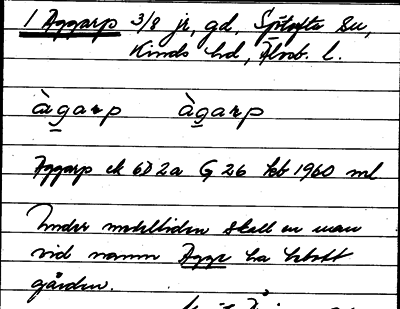 1 Aggarp 3/8 jr, gd, Sjötofta sn,
Kinds hd, Älvsb. l.
àgarp àgarp
Aggarp ek 6D 2a G 26 feb 1960 ml
Under medeltiden skall en man
vid namn Agge ha bebott
gården.